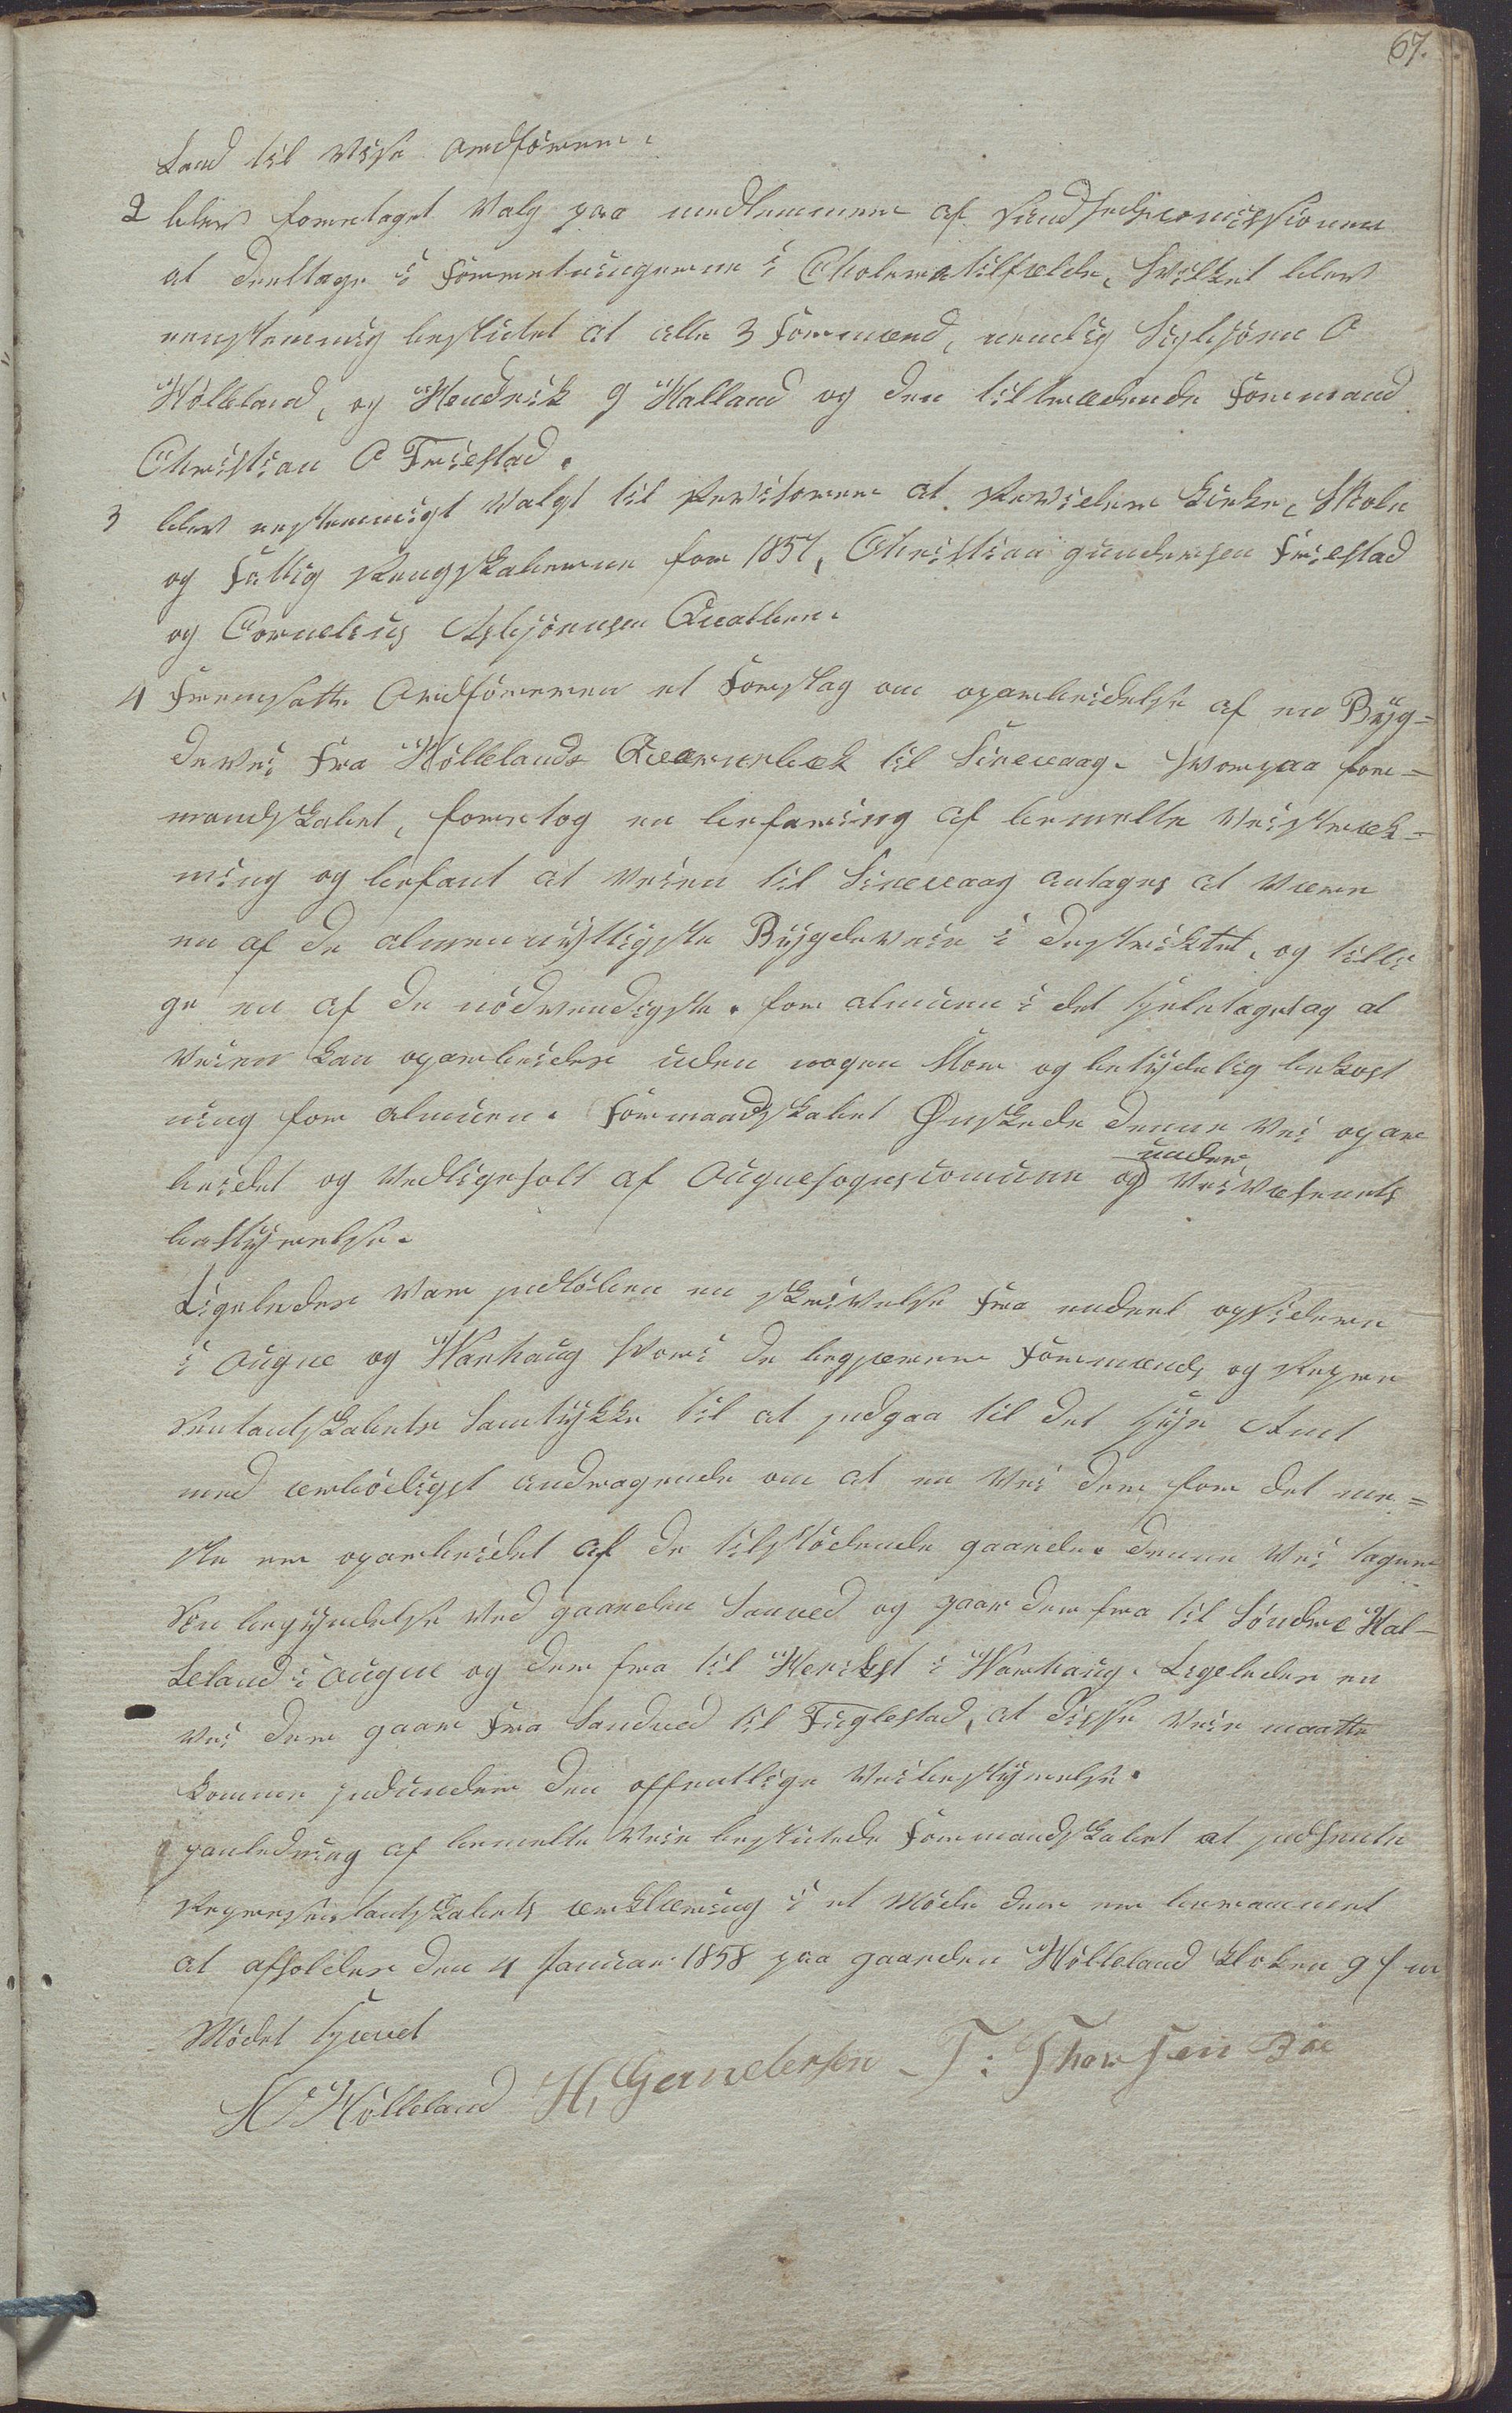 67.
Land til Vise Ordförer.
2 blev foretaget Valg paa medlemmer af Sundhedscomissionen
at deeltage i Forretningerne i Choleratilfælde, hvilket blev
eenstemmig besluttet at alle 3 Formænd, nemlig Sigbjörn O
Hölleland, og Hendrik G Halland og den tiltrædende Formand
Christian O Friestad.
3 blev enstemmigt Valgt til Revisorer at Revidere Kirke, Skole
og Fattig Rengskaberne for 1857, Christian Gundersen Friestad
og Cornelius Asbjörnsen Qualben.
4 Fremsatte Ordföreren et Forslag om oparbeidelse af en Byg=
devei fra Höllelands Qværnebæk til Sirevaag. hvorpaa for=
mandskabet, foretog en befaring af bemelte Veistræk=
ning og befant at Veien til Sirevaag antages at være
en af de almennyttigste Bygdeveie i Destriktet, og tilli
ge en af de nödvendigste. for almuen i det heletaget og at
Veien kan oparbeides uden nogen Stor og betydelig bekost
ning for almuen. Formandskabet Ønskede denne Vei opar
beidet og Vedligeholt af Ougnesognscomune og under VeiVæsenets
bestyrelse.
Ligeledes var indlöben en skrivelse fra endeel opsidere
i Ougne og Warhaug hvori de begjærer Formænds og Repre
sentantskabets Samtykke til at indgaa til det höje Amt
med ærbödigst andragende om at en Vei der for det me=
ste er oparbeidet af de tilstödende gaarde. denne Vei tager
Sin begyndelse ved gaarden Sanved og gaar der fra til Söndre Hal-
leland i Ougne og der fra til Herikst i Warhaug. Ligeledes en
Vei der gaar fra Sandved til Fuglestad, at disse Veie maatte
komme indunder den offentlige Veibestyrelse.
I panledning af bemelte Veie besluttede Formandskabet at indhente
Representantskabets ærklæring i et Möde der er berammet
at afholdes den 4 Januar 1858 paa gaarden Hölleland Kloken 9 f m
Mödet hævet
S O Hölleland H, Gundersen T: Thorsen Böe